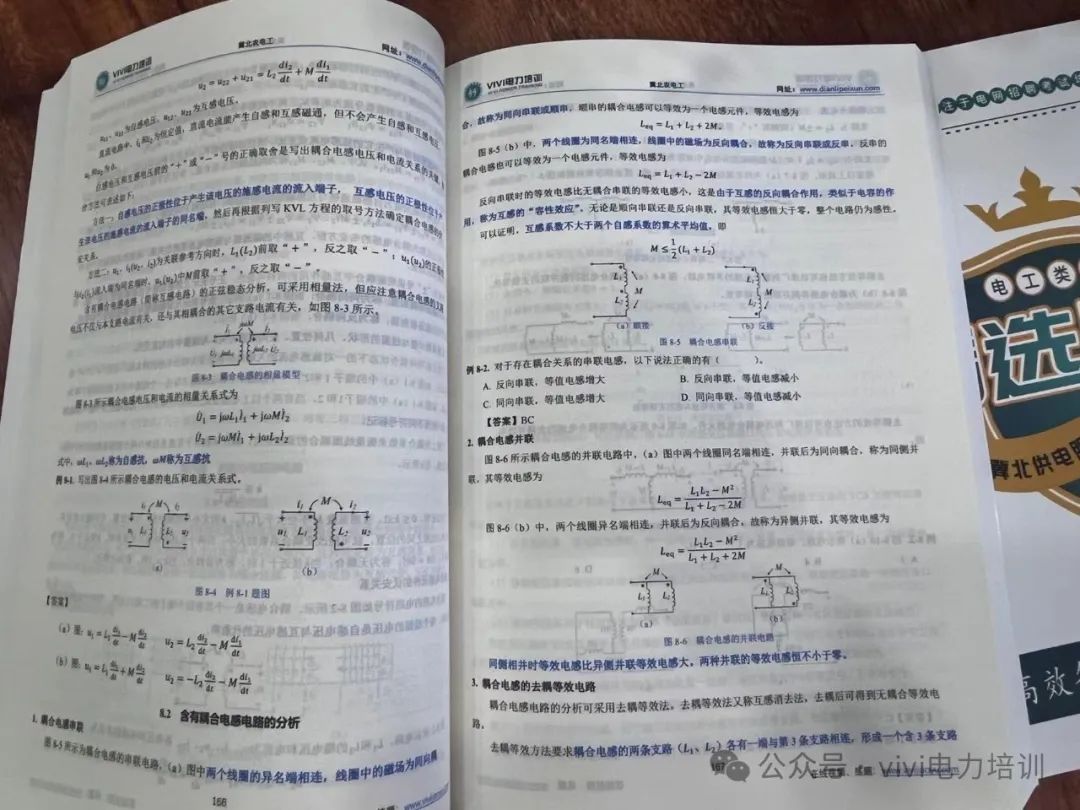 VIVI电力培训
冀北农电工
网址:www.dianlipeixun.com
u₂ = u₂₂ + u₂₁ = L₂ di₂/dt + M di₁/dt
u₁₁、u₂₂为自感电压,u₁₂、u₂₁为互感电压。
直流电路中,i₁和i₂为恒定值,直流电流能产生自感和互感磁通,但不会产生自感和互感电压
u₁和u₂为0。
自感电压和互感电压前的“+”或“-”号的正确取舍是写出耦合电感电压和电流关系的关键
方法一:自感电压的正极性位于产生该电压的施感电流的流入端子, 互感电压的正极性位于产
生该电压的施感电流的流入端子的同名端,然后再根据列写 KVL 方程的取号方法确定耦合电感的
安关系。
方法二:u₁、i₁(u₂、i₂)为关联参考方向时,L₁(L₂)前取“+”,反之取“-”;u₁(u₂)的正
流入端为同名端时,u₁(u₂)中M前取“+”,反之取“-”
含有耦合电感电路(简称互感电路)的正弦稳态分析,可采用相量法,但应注意耦合电感的支路
电压不仅与本支路电流有关,还与其相耦合的其它支路电流有关,如图 8-3 所示。
图 8-3 耦合电感的相量模型
图 8-3 所示耦合电感电压和电流的相量关系式为
U̇₁ = jωL₁İ₁ + jωMİ₂
U̇₂ = jωMİ₁ + jωL₂İ₂
式中,ωL₁、ωL₂称为自感抗,ωM称为互感抗
例 8-1. 写出图 8-4 所示耦合电感的电压和电流关系式。
(a) (b)
图 8-4 例 8-1 题图
【答案】
(a)图:u₁ = L₁ di₁/dt − M di₂/dt u₂ = L₂ di₂/dt − M di₁/dt
(b)图:u₁ = L₁ di₁/dt + M di₂/dt u₂ = −L₂ di₂/dt − M di₁/dt
8.2 含有耦合电感电路的分析
1. 耦合电感串联
图 8-5 所示为耦合电感的串联电路,(a)图中两个线圈的异名端相连,线圈中的磁场为同向耦
166
VIVI电力培训
冀北农电工
网址:www.dianlipeixun.com
合,故称为同向串联或顺串,顺串的耦合电感可以等效为一个电感元件,等效电感为
Leq = L₁ + L₂ + 2M。
图 8-5(b)中,两个线圈为同名端相连,线圈中的磁场为反向耦合,故称为反向串联或反串。反串的
耦合电感也可以等效为一个电感元件,等效电感为
Leq = L₁ + L₂ − 2M
反向串联时的等效电感比无耦合串联的等效电感小,这是由于互感的反向耦合作用,类似于电容的作
用,称为互感的“容性效应”。无论是顺向串联还是反向串联,其等效电感恒大于零,整个电路仍为感性。
可以证明,互感系数不大于两个自感系数的算术平均值,即
M ≤ ½(L₁ + L₂)
(a)顺接 (b)反接
图 8-5 耦合电感串联
例 8-2. 对于存在耦合关系的串联电感,以下说法正确的有( )。
A. 反向串联,等值电感增大 B. 反向串联,等值电感减小
C. 同向串联,等值电感增大 D. 同向串联,等值电感减小
【答案】BC
2. 耦合电感并联
图 8-6 所示耦合电感的并联电路中,(a)图中两个线圈同名端相连,并联后为同向耦合,称为同侧并
联,其等效电感为
Leq = (L₁L₂ − M²)/(L₁ + L₂ − 2M)
图 8-6(b)中,两个线圈异名端相连,并联后为反向耦合,故称为异侧并联,其等效电感为
Leq = (L₁L₂ − M²)/(L₁ + L₂ + 2M)
(a) (b)
图 8-6 耦合电感的并联电路
同侧相并时等效电感比异侧并联等效电感大,两种并联的等效电感恒不小于零。
3. 耦合电感的去耦等效电路
耦合电感电路的分析可采用去耦等效法,去耦等效法又称互感消去法,去耦后可得到无耦合等效电
路。
去耦等效方法要求耦合电感的两条支路(L₁、L₂)各有一端与第 3 条支路相连,形成一个含 3 条支路
167
注于电网招聘考试
电工类
选
冀北供电
高效
公众号 · vivi电力培训